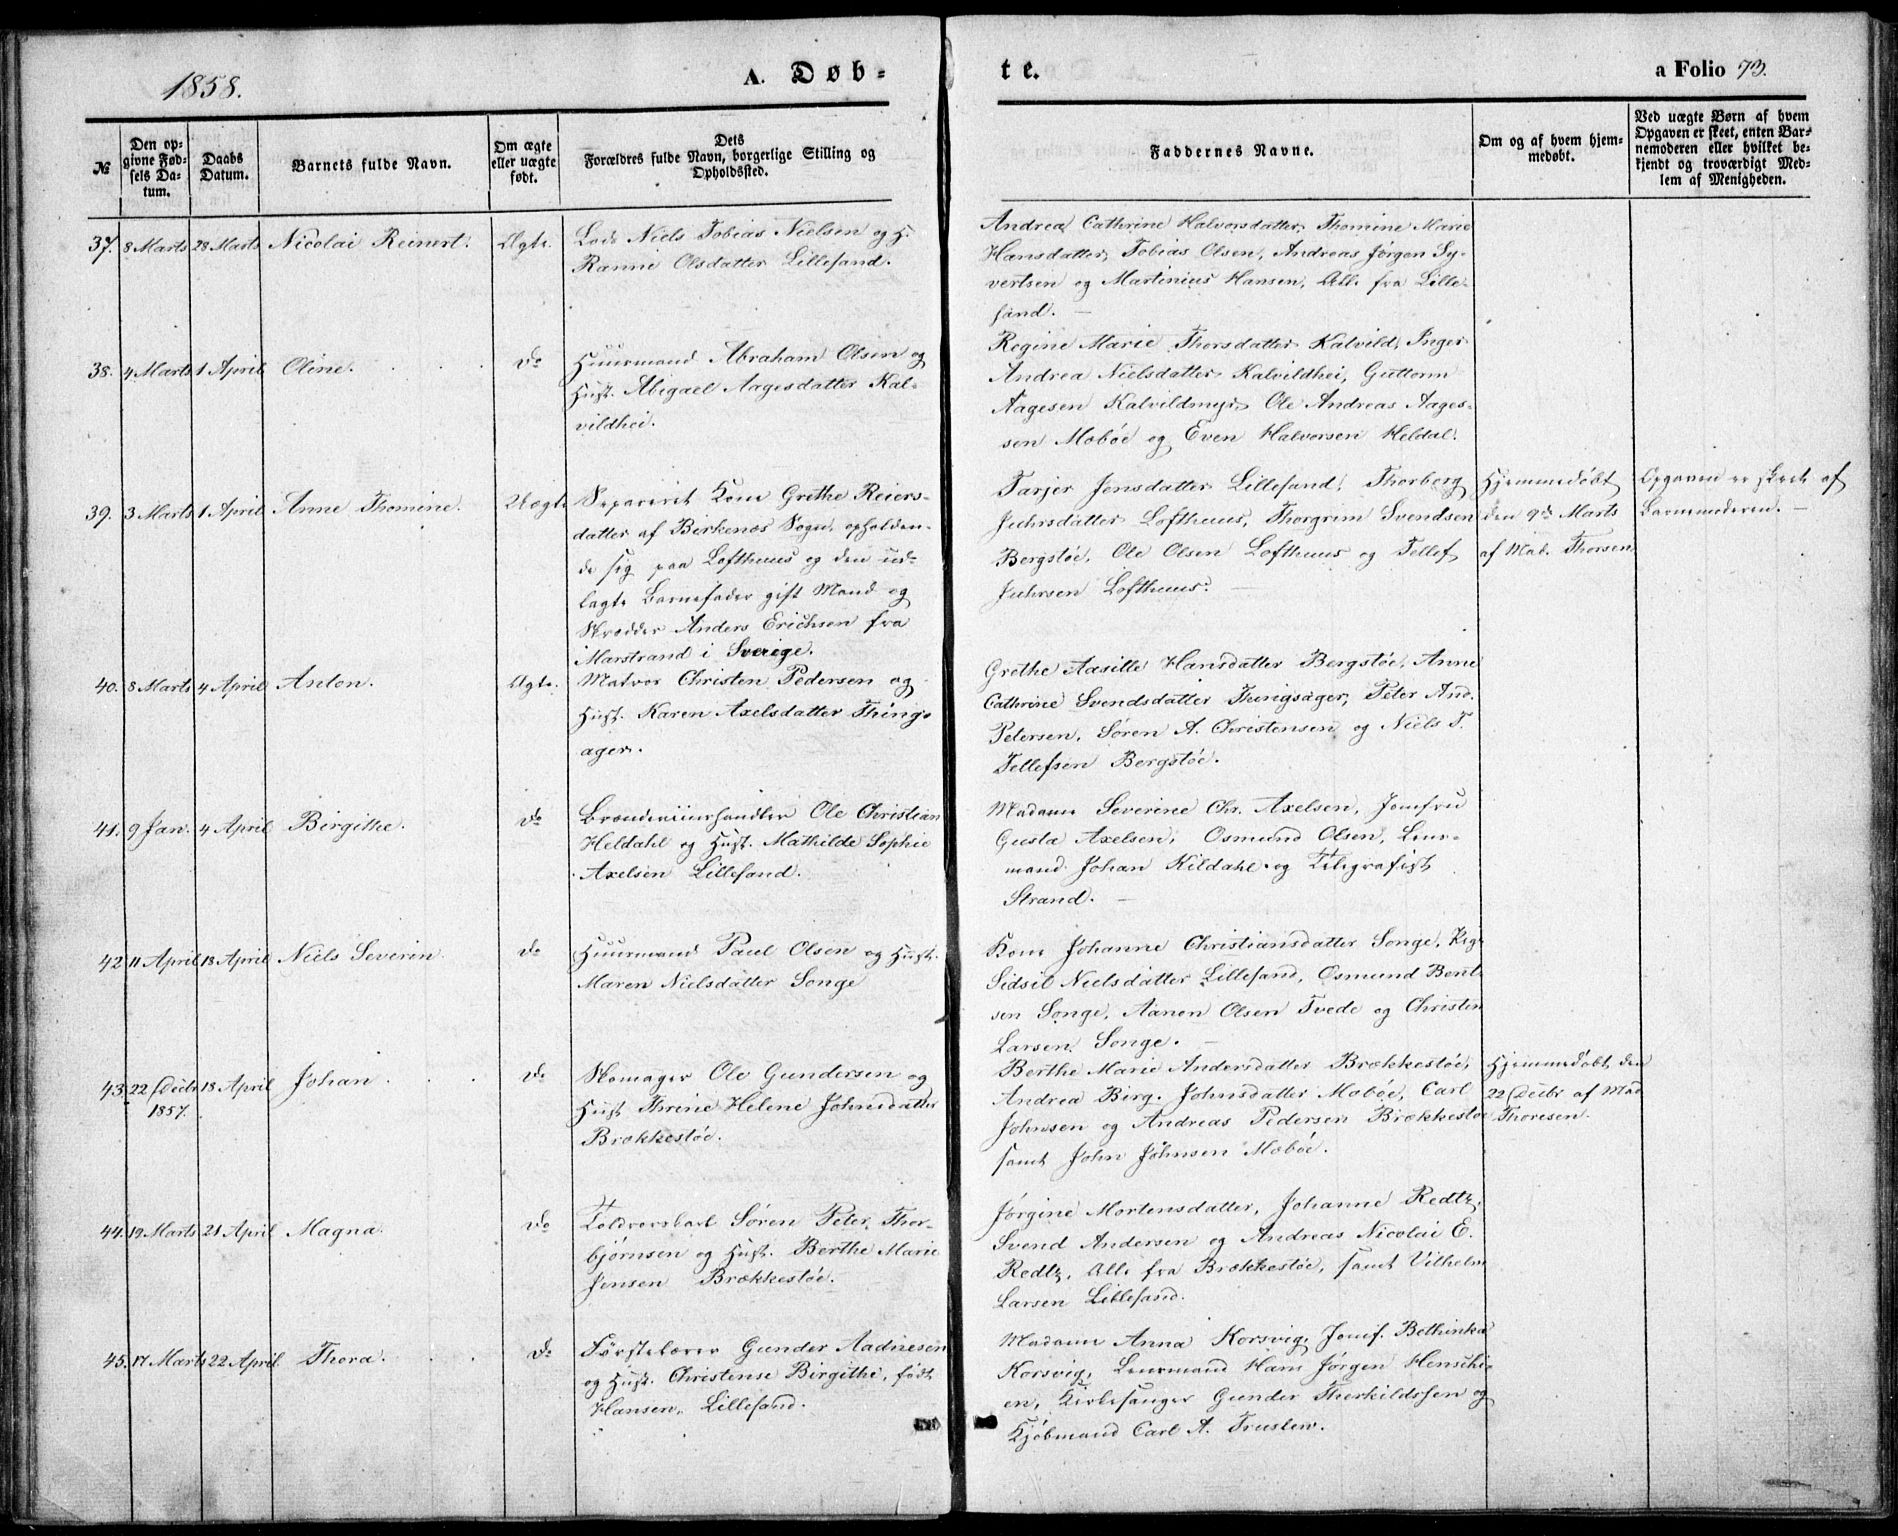 1858.
A. Døb-
te.
a Folio 73.
№
Den op-
givne Fød-
sels Da-
tum.
Daabs
Datum.
Barnets fulde Navn.
Om ægte
eller uægte
født.
Dets
Forældres fulde Navn, borgerlige Stilling og
Opholdssted.
Faddernes Navne.
Om og af hvem hjem-
medøbt.
Ved uægte Børn af hvem
Opgaven er skeet, enten Bar-
nemoderen eller hvilket be-
kjendt og troværdigt Med-
lem af Menigheden.
37. 8 Marts 28 Marts Nicolai Reinert. Ægte.
Lods Niels Tobias Nielsen og H.
Ranne Olsdatter Lillesand.
Andrea Cathrine Halvorsdatter, Thomine Marie
Hansdatter, Tobias Olsen, Andreas Jørgen Sy-
vertsen og Martinius Hansen, Alle fra Lille-
sand. —
38. 4 Marts 1 April Oline. Do
Huusmand Abraham Olsen og
Hust. Abigael Aagesdatter Kal-
vildhei.
Regine Marie Thorsdatter Kalvild, Inger
Andrea Nielsdatter Kalvildhei, Guttorm
Aagesen Kalvildmyr, Ole Andreas Aages-
sen Moböe og Even Halvorsen Heldal.
39. 3 Marts 1 April Anne Thomine. Uægte
Separeret Kone Grethe Reiers-
datter af Birkenæs Sogn, opholden-
de sig paa Lofthuus og den ud-
lagte Barnefader gift Mand og
Skrædder Anders Erichsen fra
Marstrand i Sverige.
Tarjer Jensdatter Lillesand, Thorberg
Juhrsdatter Lofthuus, Thorgrim Svendsen
Bergstöe, Ole Olsen Lofthuus og Tellef
Juhrsen Lofthuus. —
Hjemmedøbt
den 9de Marts
af Mad. Thorsen
Opgaven er skeet af
Barnemoderen. —
40. 8 Marts 4 April Anton. Ægte.
Matros Christen Pedersen og
Hust. Karen Axelsdatter Thing-
ager.
Grethe Aasille Hansdatter Bergstöe, Anne
Cathrine Svendsdatter Thingsager, Peter And.
Petersen, Søren A. Christensen og Niels T.
Tellefsen Bergstöe.
41. 9 Jan. 4 April Birgithe. Do
Brændeviinshandler Ole Christian
Heldahl og Hust. Mathilde Sophie
Axelsen Lillesand.
Madame Severine Chr. Axelsen, Jomfru
Gusta Axelsen, Osmund Olsen, Leur-
mand Johan Kildahl og Telegrafist
Strand. —
42 11 April 18 April Niels Severin. Do
Huusmand Paul Olsen og Hust.
Maren Nielsdatter Songe
Kone Johanne Christiansdatter Songe, Pige
Sidsil Nielsdatter Lillesand, Osmund Bent-
sen Songe, Aanen Olsen Tvede og Christen
Larsen Songe. —
43. 22 Decbr
1857. 18 April Johan. Do
Skomager Ole Gundersen og
Hust Thrine Helene Johnsdatter
Brækkestöe.
Berthe Marie Andersdatter Brækkestöe,
Andrea Birg. Johnsdatter Moböe, Carl
Johnsen og Andreas Pedersen Brækkestöe
samt John Johnsen Moböe.
Hjemmedøbt den
22 Decbr af Mad
Thoresen.
44. 19 Marts 21 April Magna. Do
Toldrorskarl Søren Peter Thor-
bjørnsen og Hust. Berthe Marie
Jensen Brækkestöe.
Jørgine Mortensdatter, Johanne Redtz,
Svend Andersen og Andreas Nicolai E.
Redtz, Alle fra Brækkestöe, samt Vilhelm
Larsen Lillesand.
45. 17 Marts 22 April. Thora. Do
Førstelærer Gunder Aadnesen
og Hust. Christense Birgithe, født
Hansen, Lillesand.
Madame Anna Korsvig, Jomf. Bethinka
Korsvig, Leurmand Hans Jørgen Henschi-
en, Kirkesanger Gunder Therkildssen og
Kjøbmand Carl A. Truslew.